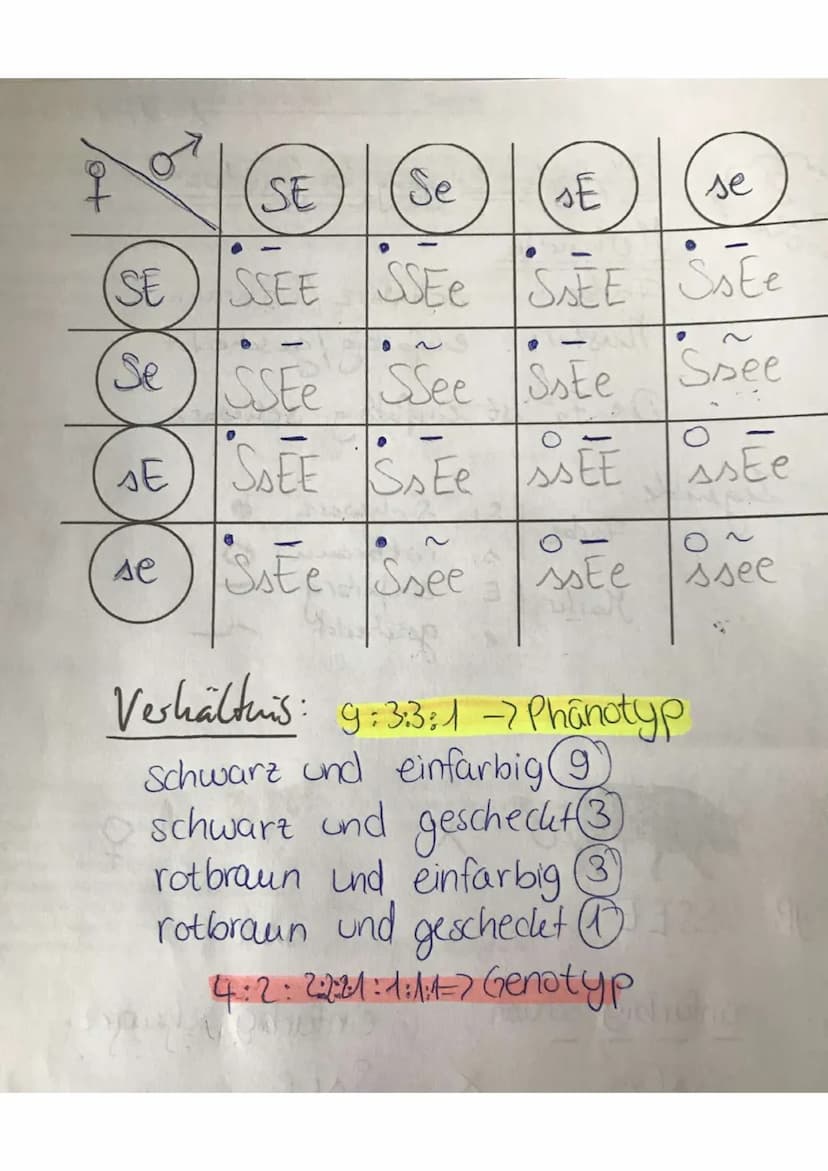 ♀ ♂ SE Se sE se
SE SSEE SSEe SsEE SsEe
Se SSEe SSee SsEe Ssee
sE SsEE SsEe ssEE ssEe
se SsEe Ssee ssEe ssee
Verhältnis: 9:3:3:1 → Phänotyp
schwarz und einfarbig 9
schwarz und gescheckt 3
rotbraun und einfarbig 3
rotbraun und gescheckt 1
4:2:2:2:2:1:1:1:1=> Genotyp